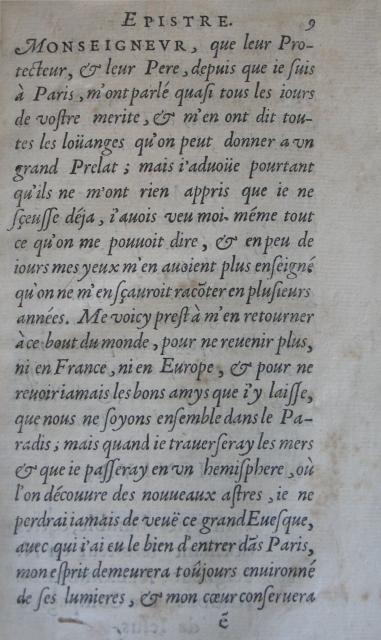 EPISTRE. 9
MONSEIGNEVR, que leur Pro-
tecteur, & leur Pere, depuis que ie suis
à Paris, m'ont parlé quasi tous les iours
de vostre merite, & m'en ont dit tou-
tes les loüanges qu'on peut donner a vn
grand Prelat ; mais i'aduoüe pourtant
qu'ils ne m'ont rien appris que ie ne
sçeusse déja, i'auois veu moi-méme tout
ce qu'on me pouuoit dire, & en peu de
iours mes yeux m'en auoient plus enseigné
qu'on ne m'en sçauroit racõter en plusieurs
années. Me voicy prest à m'en retourner
à ce bout du monde, pour ne reuenir plus,
ni en France, ni en Europe, & pour ne
reuoir iamais les bons amys que i'y laisse,
que nous ne soyons ensemble dans le Pa-
radis ; mais quand ie trauerseray les mers
& que ie passeray en vn hemisphere, où
l'on découure des nouueaux astres, ie ne
perdrai iamais de veuë ce grand Euesque,
auec qui i'ai eu le bien d'entrer dãs Paris,
mon esprit demeurera toûjours enuironné
de ses lumieres, & mon cœur conseruera
ẽ